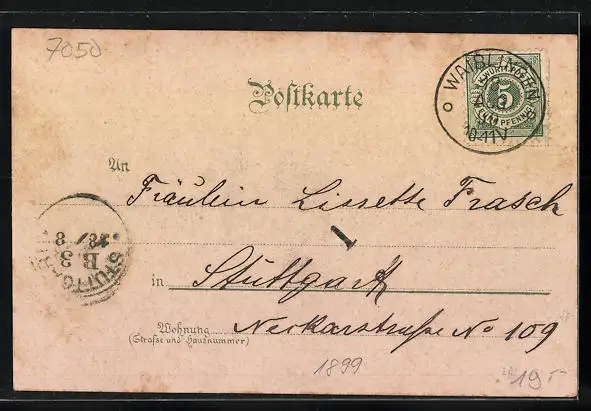 7050
Postkarte
WAIBLINGEN
K. WÜRTT. POST
5
FÜNF PFENNIG
10-11V
An
Fräulein Lissette Frasch
1
STUTTGART
B.3
in Stuttgart
Wohnung
(Strasse und Hausnummer)
Neckarstraße No 109
1899
19,-